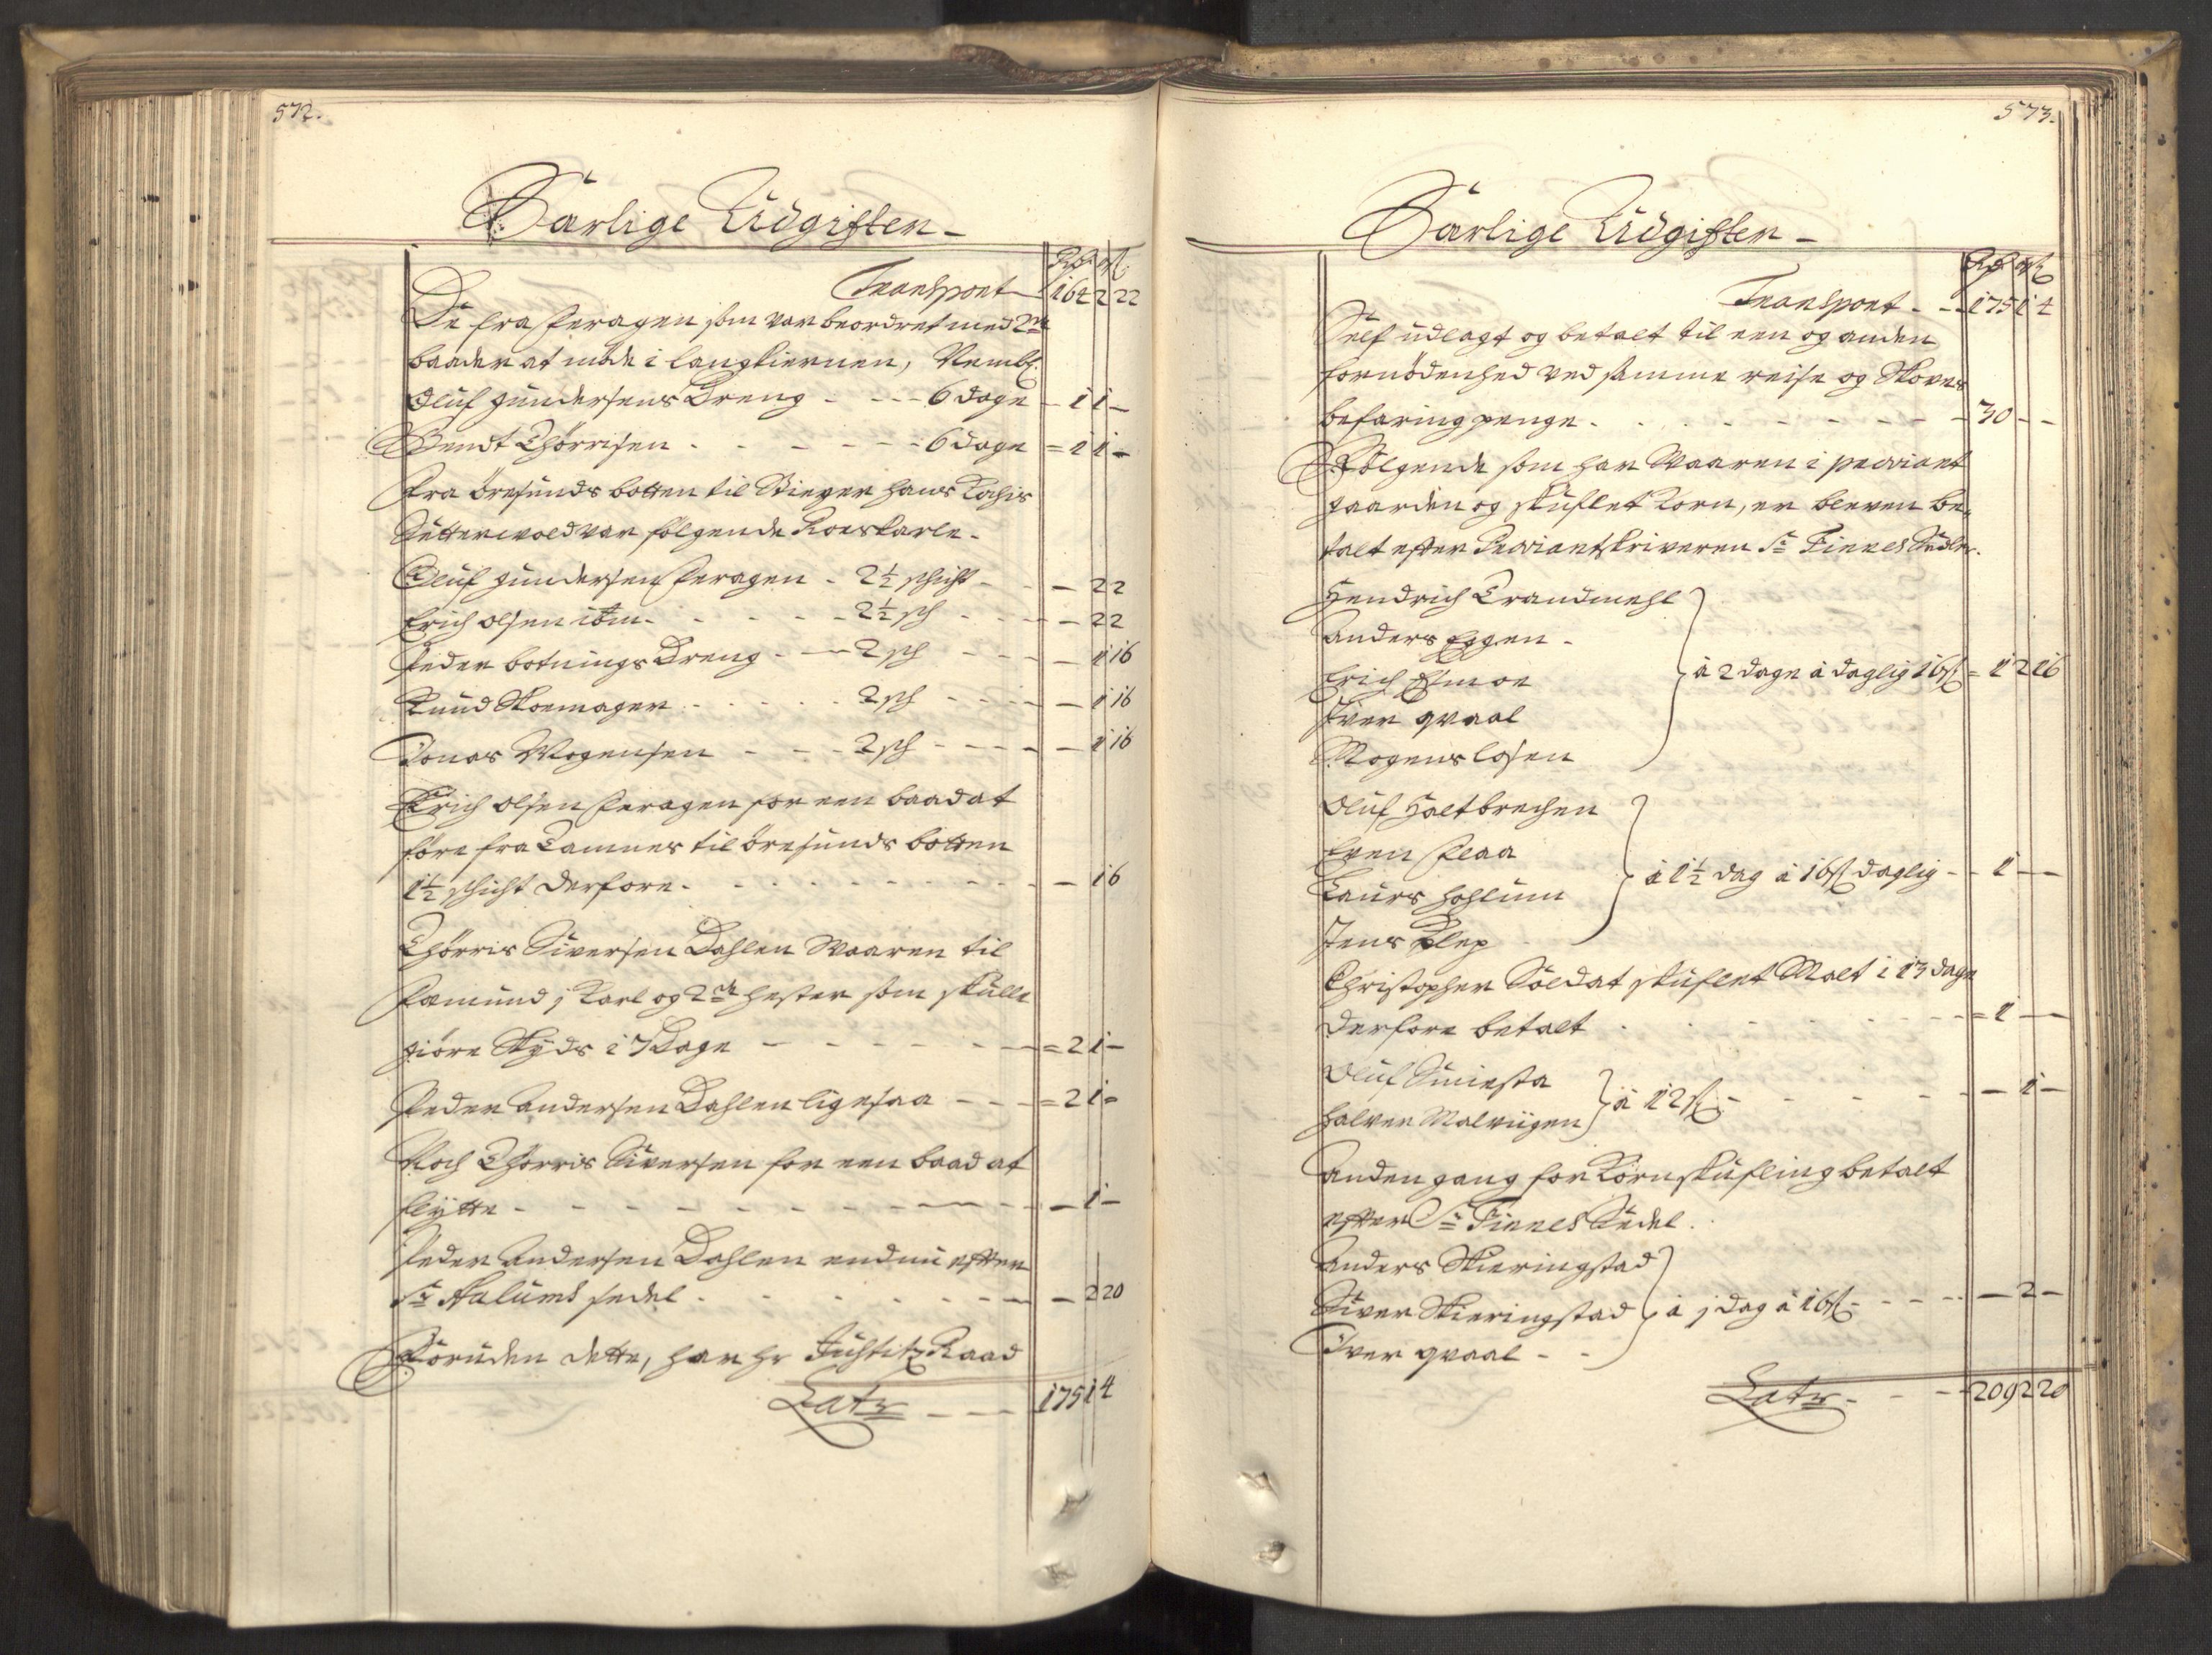 572.
Særlige Udgifter
Rd. ort ß
Transport 164 2 22
De fra Feragen som var beordret med 2de
baader at møde i langtiernen, Nembl.
Oluf Gundersens Dreng - - - 6 dage - 1 1 -
Bendt Thørrisen - - - 6 dage = 1 1 -
Fra Øresunds botten til Stieger Hans
var følgende Roeskarle.
Oluf Gundersen Feragen - 2½ schicht - - 22
Erich olsen itm. - - - 2½ sch - - - 22
Peder botnings Dreng - - 2 sch - - - 1 16
Knud Skoemager - - - 2 sch - - - 1 16
Jonas Mogensen - - - 2 sch - - - 1 16
Erich olsen Feragen for een baad at
føre fra Tamnes til Øresunds botten
1½ schicht derfore - - - - 16
Thørris Siversen Dahlen Waaren til
Fæmund j Karl og 2de hester som skulle
giøre Skyds i 7 Dage - - - = 2 1 -
Peder Andersen Dahlen ligesaa - - = 2 1 -
Noch Thørris Siversen for een baad at
flytte - - - - - 1 -
Peder Andersen Dahlen endnu efter
Sr. Aalums sedel - - - - 2 20
Foruden dette, har hr Justitz Raad
Latr - - 175 1 4
573.
Særlige Udgifter
Rd. ort ß
Transport - - 175 1 4
Self udlagt og betalt til een og anden
fornødenhed ved samme reise og Skoves
befaring penge - - - - 30 - -
Følgende som har Waaren i proviant
gaarden og skuflet Korn, er bleven be-
talt efter Proviantskriveren Sr. Finnes Sedler.
Hendrich Trandmehl
Anders Eggen -
Erich Esmoe
Iver qvaal
Mogens losen
à 2 dage à daglig 16ß = 1 2 16
Oluf Holtbrechen
Even Flaa
Laurs hohlum
Jens Klep
à 1½ dag à 16ß daglig - - 1 - -
Christopher Soldat skuflet Malt i 13 dage
derfore betalt - - - = 1 - -
Oluf
Halver Malviigen
à 12ß - - - - 1 -
Anden gang for Korn skufling betalt
efter Sr. Finnes Sedel.
Anders Skieringstad
Siver Skieringstad
Iver qvaal - -
à j dag à 16ß - - - - 2 -
Latr - - - 209 2 20